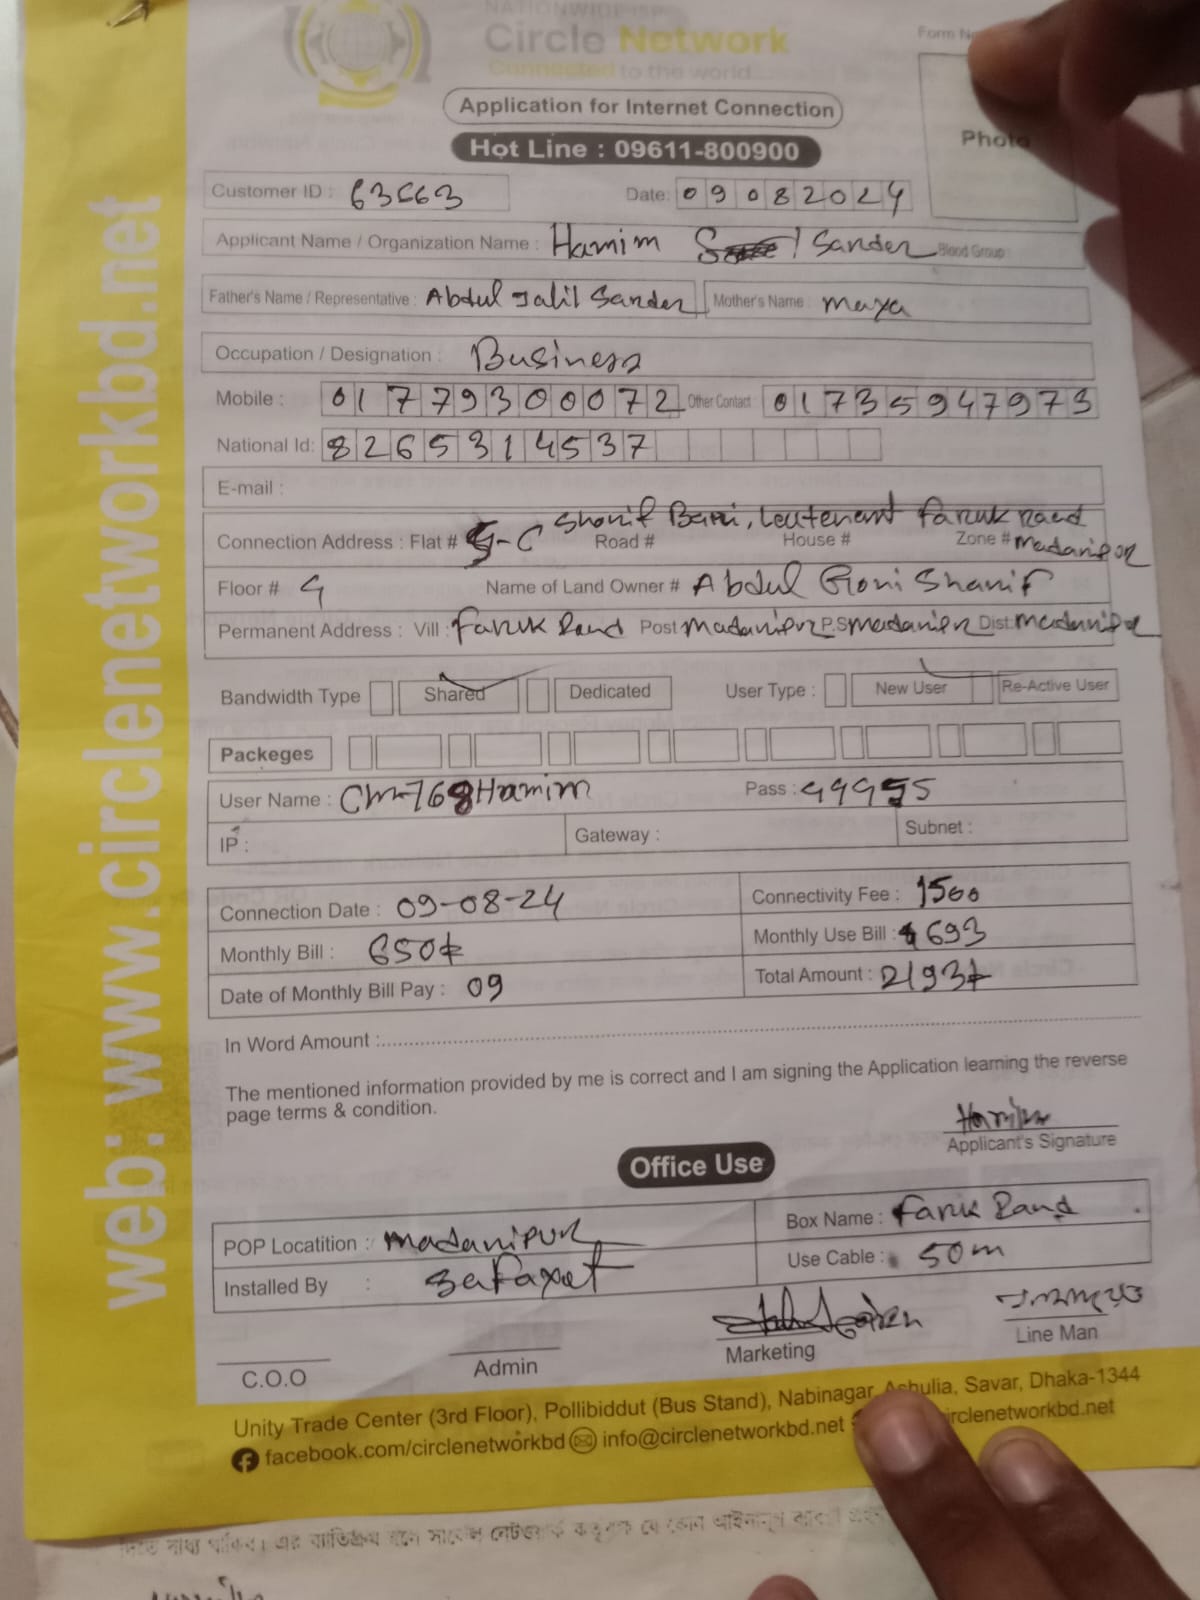 NATIONWIDE ISP
Circle Network
Connected to the world
Form No
Photo
Application for Internet Connection
Hot Line : 09611-800900
Customer ID : 63663 Date: 09082024
Applicant Name / Organization Name : Hamim / Sarder Blood Group :
Father's Name / Representative : Abdul Jalil Sarder Mother's Name : Maya
Occupation / Designation : Business
Mobile : 01779300072 Other Contact 01735947973
National Id: 8265314537
E-mail :
Sharif Bari, Leutenant Faruk Raod
Connection Address : Flat # 5-C Road # House # Zone # Madaripur
Floor # 4 Name of Land Owner # Abdul Goni Sharif
Permanent Address : Vill : Faruk Raod Post Madaripur P.S Madaripur Dist. Madaripur
Bandwidth Type Shared Dedicated User Type : New User Re-Active User
Packeges
User Name : Pass :
IP : Gateway : Subnet :
Connection Date : 09-08-24 Connectivity Fee : 1500
Monthly Bill : 650৳ Monthly Use Bill : 693
Date of Monthly Bill Pay : 09 Total Amount : 2193৳
In Word Amount :
The mentioned information provided by me is correct and I am signing the Application learning the reverse
page terms & condition.
Hamim
Applicant's Signature
Office Use
POP Locatition : Madaripur Box Name : Faruk Raod
Installed By : Use Cable : 50m
C.O.O Admin Marketing Line Man
Unity Trade Center (3rd Floor), Pollibiddut (Bus Stand), Nabinagar, Ashulia, Savar, Dhaka-1344
facebook.com/circlenetworkbd info@circlenetworkbd.net circlenetworkbd.net
web: www.circlenetworkbd.net